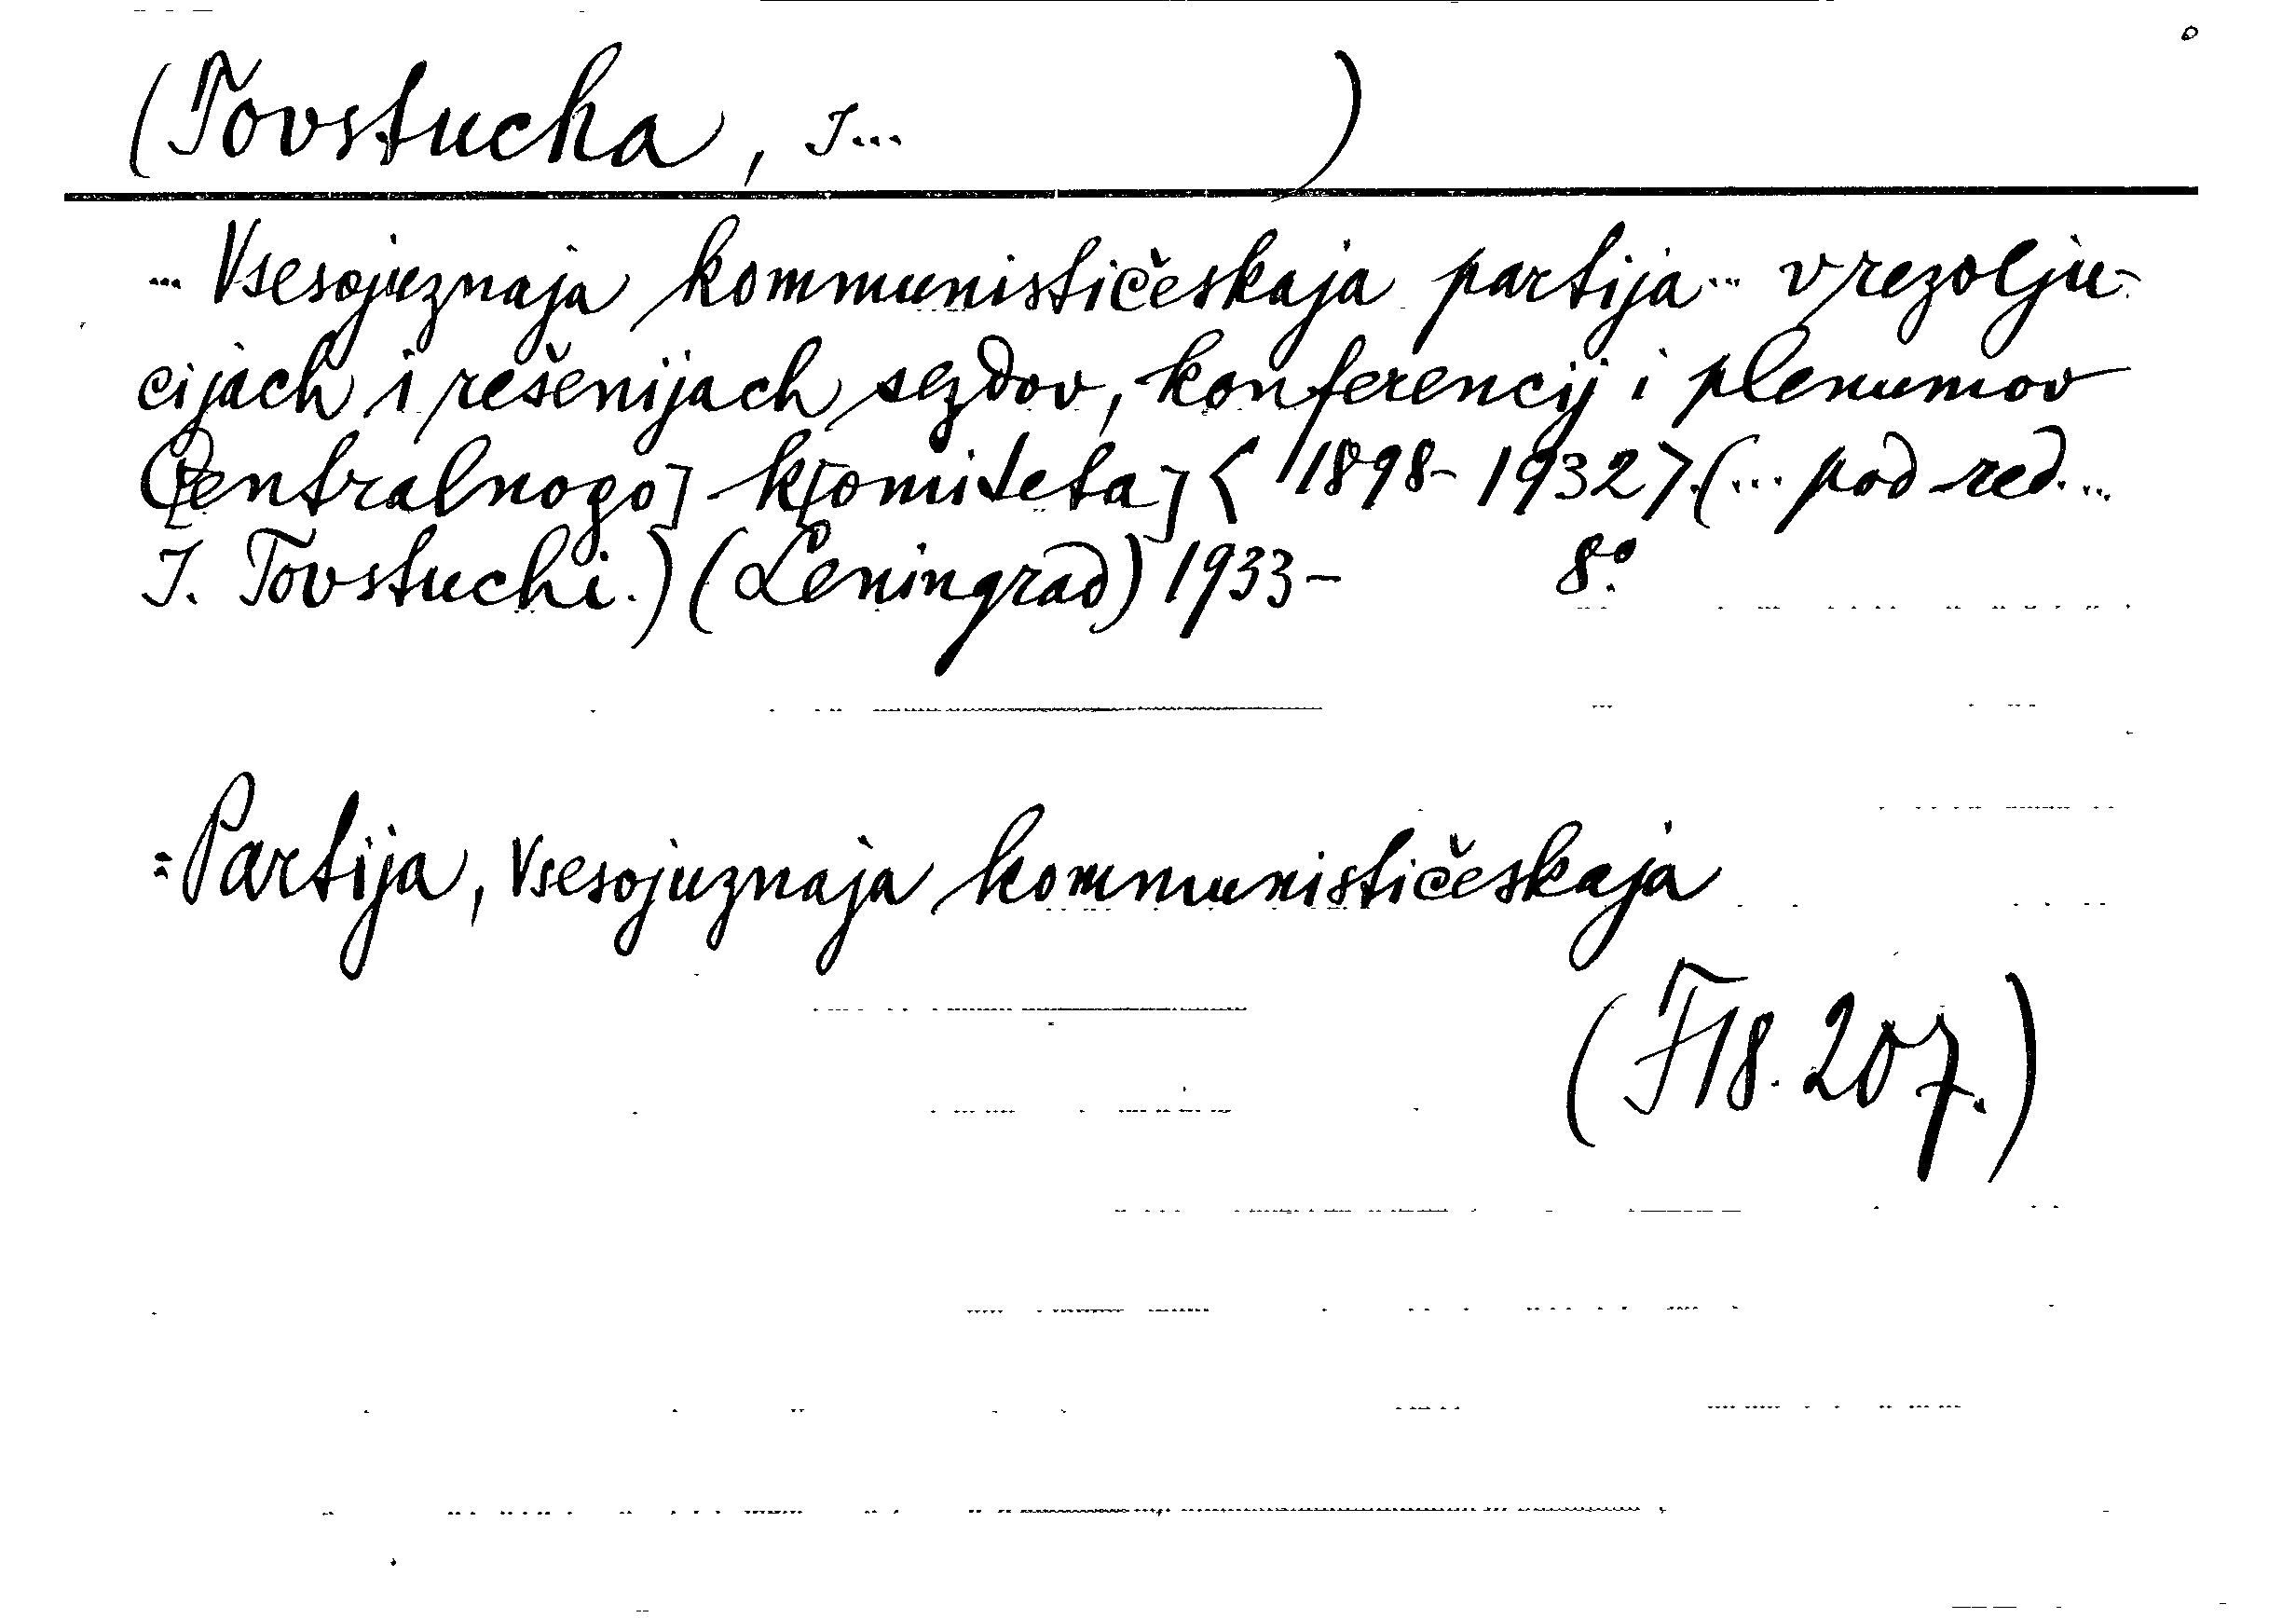 (Tovstucha, I... )
... Vsesojuznaja kommunističeskaja partija ... v rezolju-
cijach i rešenijach sezdov, konferencij i plenumov
C[entralnogo] k[omiteta] < 1898-1932 >. (... pod red. ...
I. Tovstuchi.) (Leningrad) 1933- 8°.
= Partija, Vsesojuznaja kommunističeskaja
(F18. 207.)